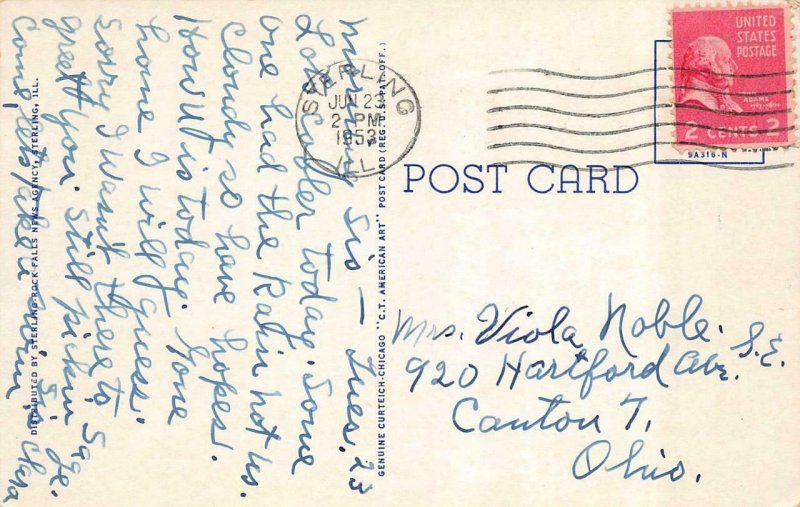 My Dear Sis — Tues. 23
Lots Cooler today. Some
one had the Rain not us.
Cloudy so have hopes.
How U is today. Gone
home I will guess.
Sorry I wasn't there to Say
greet you. Still pickin
Come lets take a swim
DISTRIBUTED BY STERLING-ROCK FALLS NEWS AGENCY, STERLING, ILL.
GENUINE CURTEICH-CHICAGO "C.T. AMERICAN ART" POST CARD (REG. U.S. PAT. OFF.)
STERLING
JUN 23
2 PM
1953
ILL.
UNITED
STATES
POSTAGE
ADAMS
2 CENTS 2
9A316-N
POST CARD
Mrs. Viola Noble.
920 Hartford Ave. S.E.
Canton 7,
Ohio.